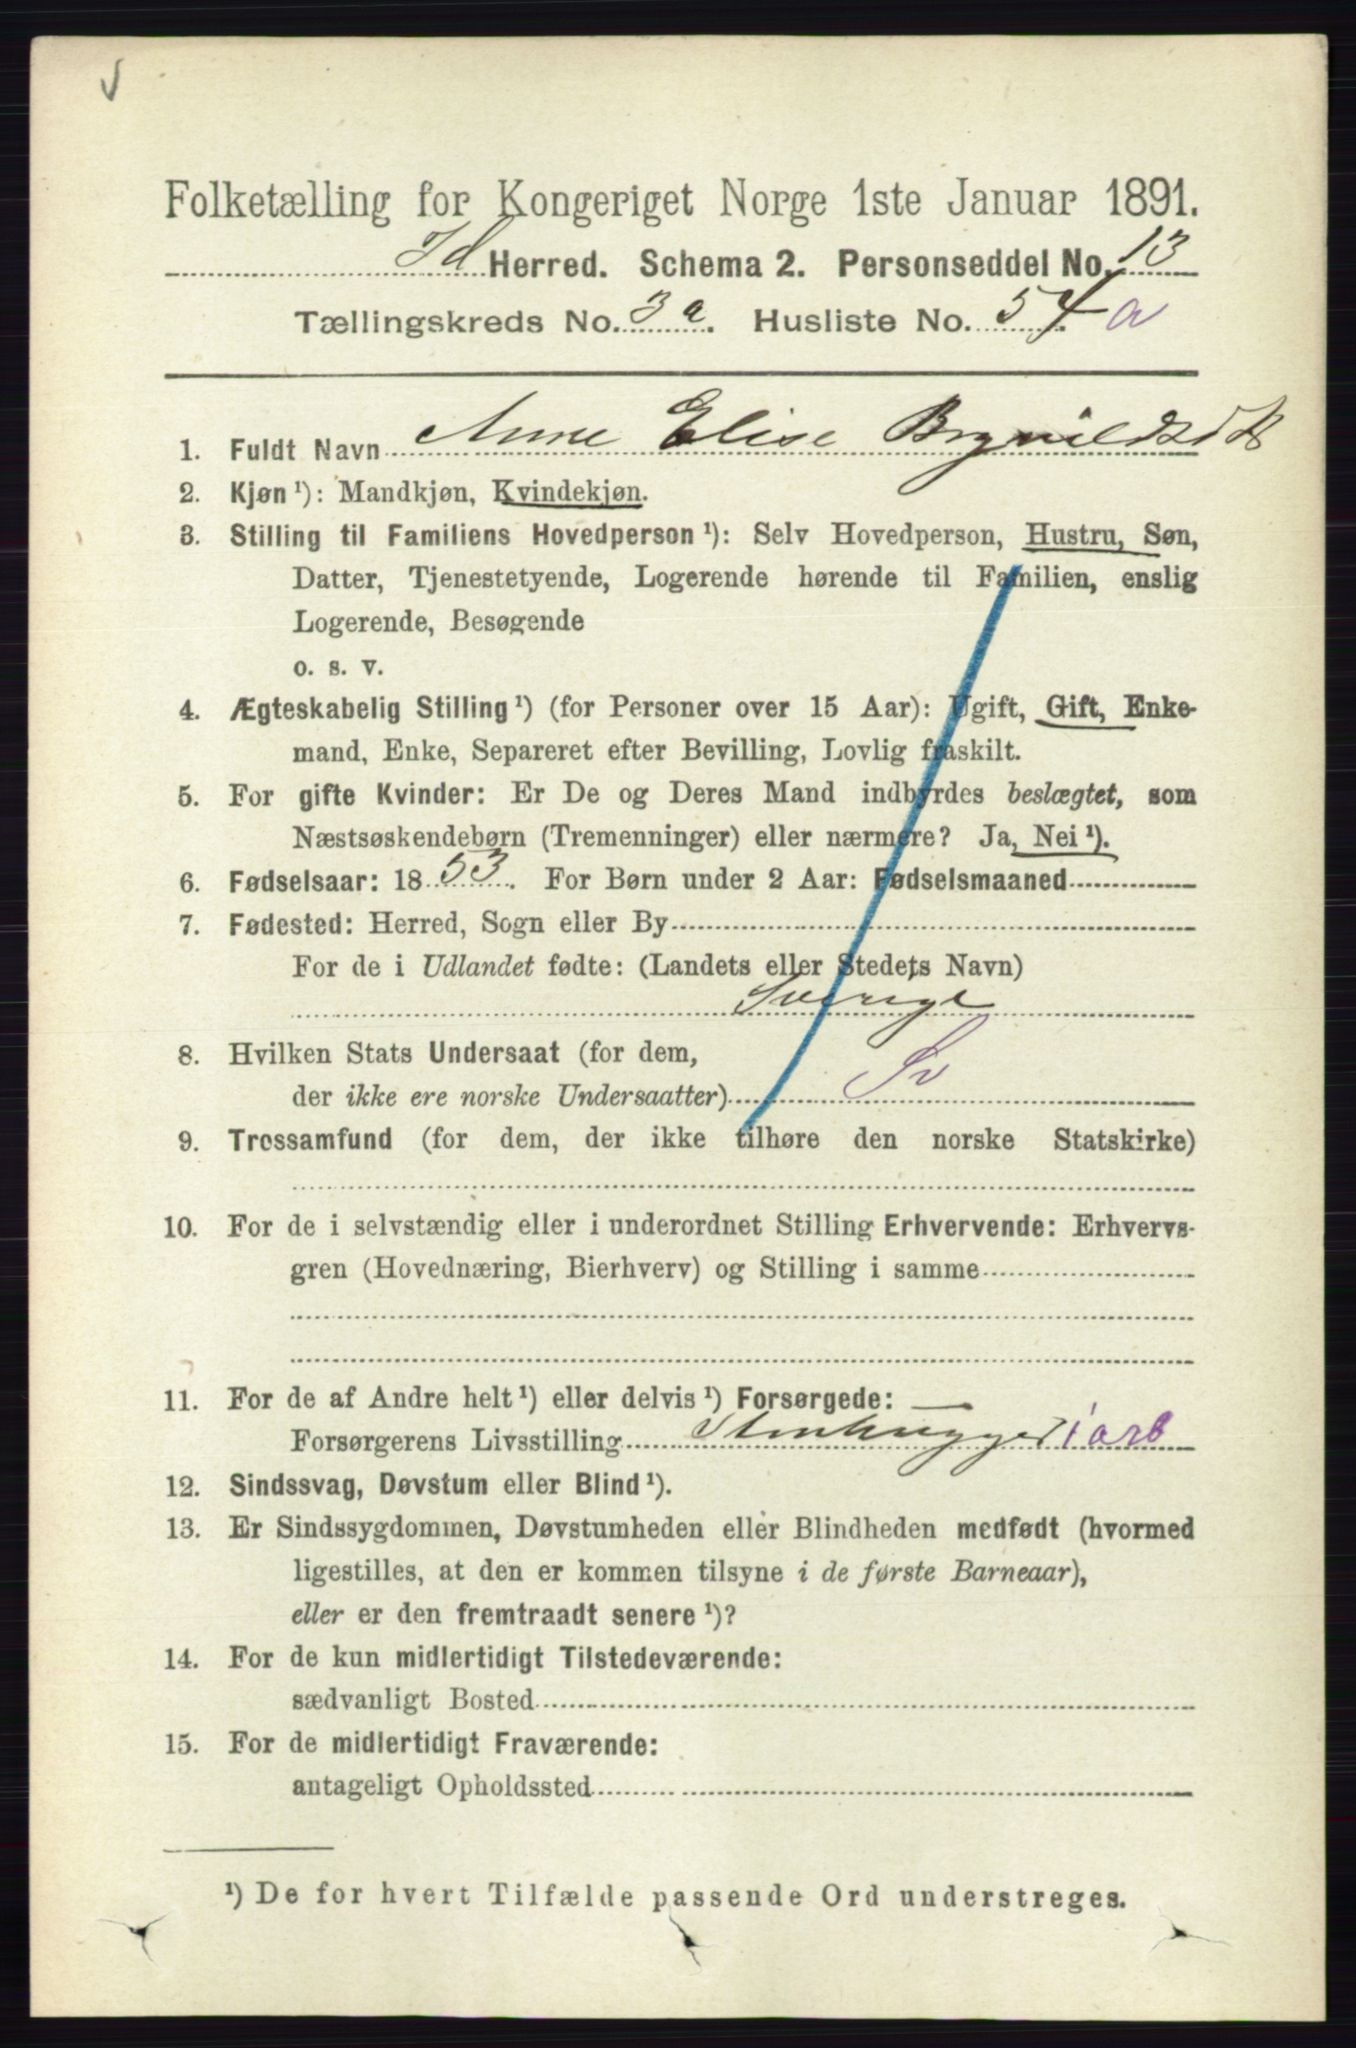 Folketælling for Kongeriget Norge 1ste Januar 1891.
Id Herred. Schema 2. Personseddel No. 13
Tællingskreds No. 3 a. Husliste No. 54. a
1. Fuldt Navn Anne Elise Brynildsdtr
2. Kjøn ¹): Mandkjøn, Kvindekjøn.
3. Stilling til Familiens Hovedperson ¹): Selv Hovedperson, Hustru, Søn,
Datter, Tjenestetyende, Logerende hørende til Familien, enslig
Logerende, Besøgende
o. s. v.
4. Ægteskabelig Stilling ¹) (for Personer over 15 Aar): Ugift, Gift, Enke-
mand, Enke, Separeret efter Bevilling, Lovlig fraskilt.
5. For gifte Kvinder: Er De og Deres Mand indbyrdes beslægtet, som
Næstsøskendebørn (Tremenninger) eller nærmere? Ja, Nei ¹).
6. Fødselsaar: 1853. For Børn under 2 Aar: Fødselsmaaned
7. Fødested: Herred, Sogn eller By
For de i Udlandet fødte: (Landets eller Stedets Navn)
Sverige
8. Hvilken Stats Undersaat (for dem,
der ikke ere norske Undersaatter) Sv
9. Trossamfund (for dem, der ikke tilhøre den norske Statskirke)
10. For de i selvstændig eller i underordnet Stilling Erhvervende: Erhvervs-
gren (Hovednæring, Bierhverv) og Stilling i samme
11. For de af Andre helt ¹) eller delvis ¹) Forsørgede:
Forsørgerens Livsstilling Stenhugger iarb
12. Sindssvag, Døvstum eller Blind ¹).
13. Er Sindssygdommen, Døvstumheden eller Blindheden medfødt (hvormed
ligestilles, at den er kommen tilsyne i de første Barneaar),
eller er den fremtraadt senere ¹)?
14. For de kun midlertidigt Tilstedeværende:
sædvanligt Bosted
15. For de midlertidigt Fraværende:
antageligt Opholdssted
¹) De for hvert Tilfælde passende Ord understreges.